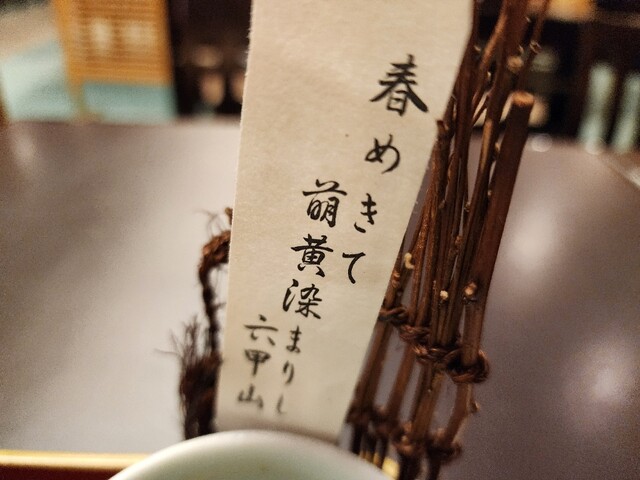 春めきて
萌黄染まりし
六甲山